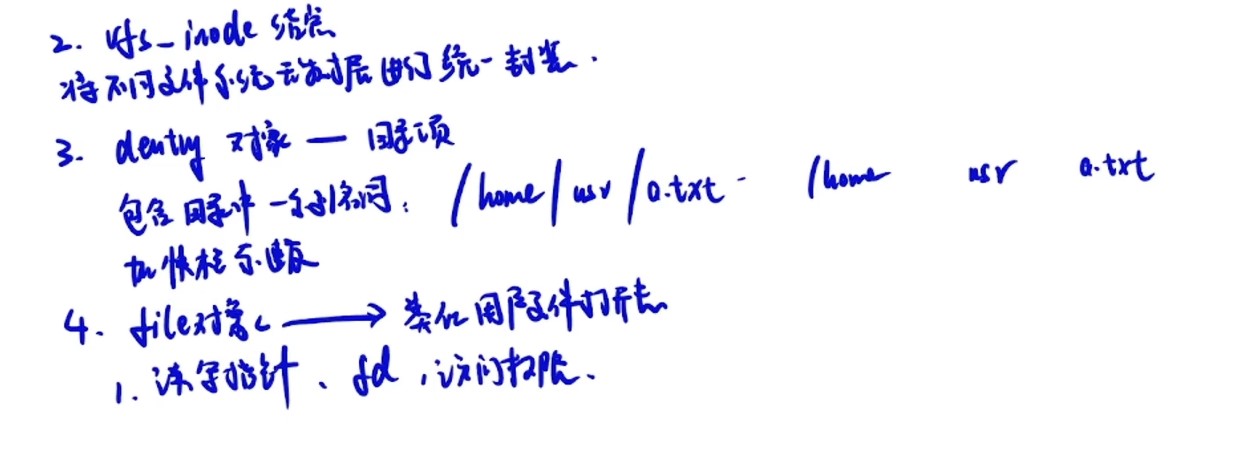 2. vfs_inode 结点
将不同文件系统元数据进行统一封装.
3. dentry 对象 — 目录项
包含目录中一系列名词: /home/usr/a.txt /home usr a.txt
加快检索速度
4. file对象 → 类似用户文件打开表
1. 读写指针、fd, 访问权限、